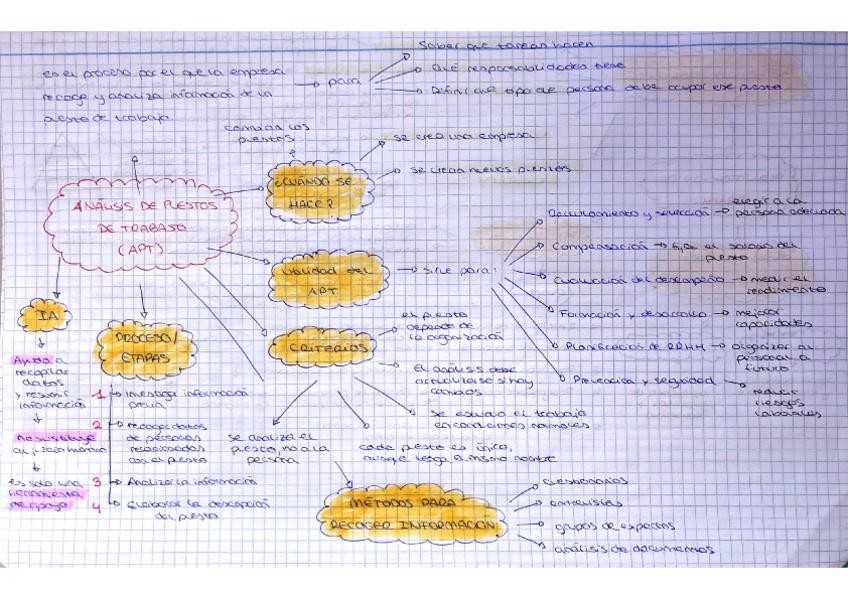 Saber que tareas hacen
es el proceso por el que la empresa
recoge y analiza información de un
puesto de trabajo
para
Qué responsabilidades tiene
Definir que tipo de persona debe ocupar ese puesto
cambian los
puestos
se crea una empresa
se crean nuevos puestos
¿CUÁNDO SE
HACE?
ANÁLISIS DE PUESTOS
DE TRABAJO
(APT)
Utilidad del
APT
sirve para:
Reclutamiento y selección → elegir a la
persona adecuada
Compensación → fijar el salario del
puesto
Evaluación del desempeño → medir el
rendimiento
Formación y desarrollo → mejorar
capacidades
Planificación de RRHH → organizar al
personal a
futuro
Prevención y seguridad → reducir
riesgos
laborales
IA
Ayuda a
recopilar
datos
y resumir
información
no sustituye
al juicio humano
es solo una
herramienta
de apoyo
PROCESO/
ETAPAS
1 → Investigar información
previa
2 → recoger datos
de personas
relacionadas
con el puesto
3 → Analizar la información
4 → Elaborar la descripción
del puesto
CRITERIOS
el puesto
depende de
la organización
el análisis debe
actualizarse si hay
cambios
se estudia el trabajo
en condiciones normales
cada puesto es único,
aunque tenga el mismo nombre
se analiza el
puesto, no a la
persona
MÉTODOS PARA
RECOGER INFORMACIÓN
cuestionarios
entrevistas
grupos de expertos
análisis de documentos